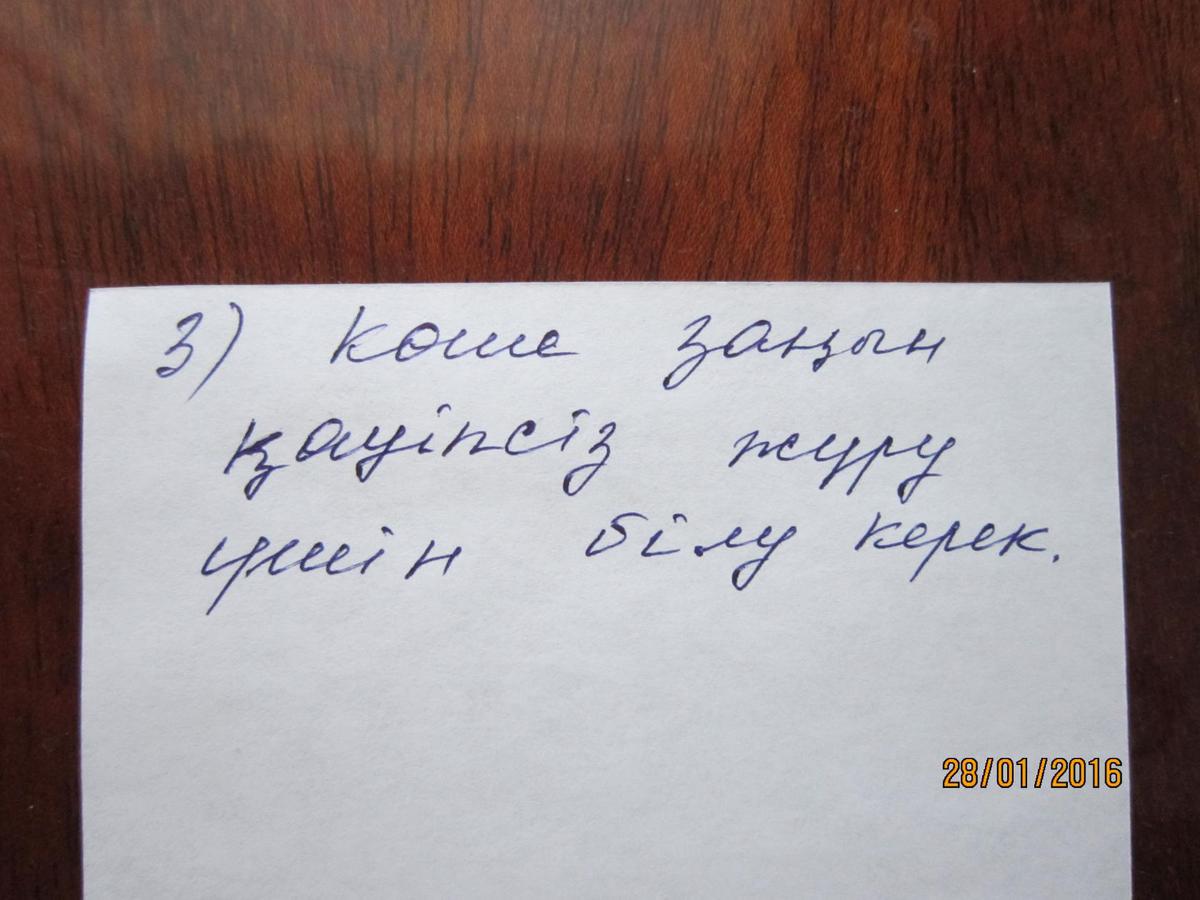 3) Көше заңын
қауіпсіз жүру
үшін білу керек.
28/01/2016